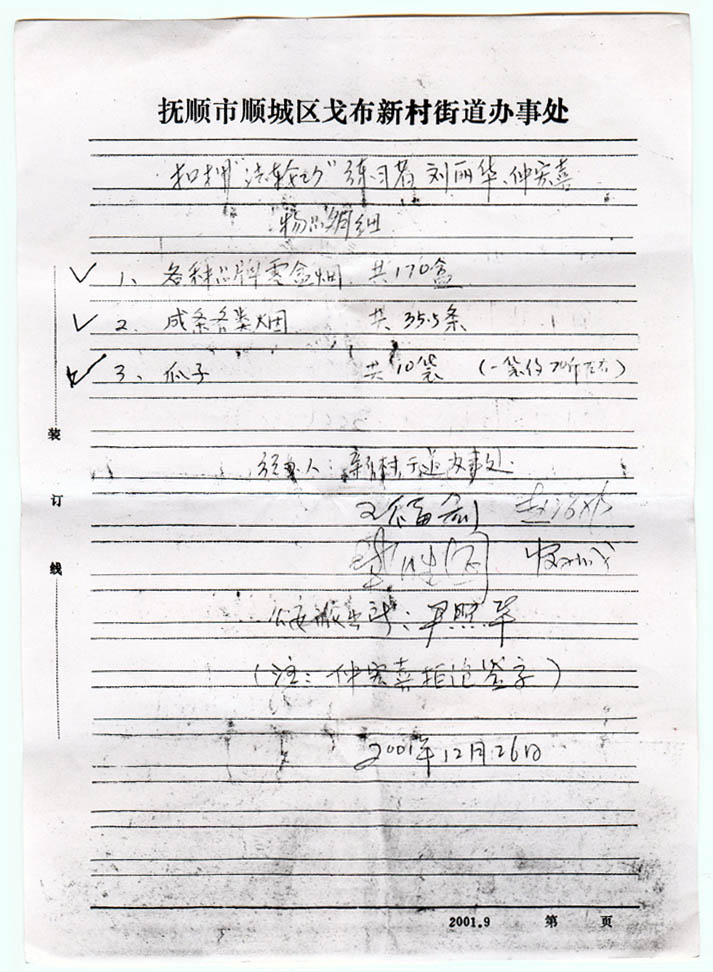 抚顺市顺城区戈布新村街道办事处
扣押"法轮功"练习者刘丽华、仲宏喜
物品明细
✓ 1、各种品牌零盒烟 共170盒
✓ 2、成条各类烟 共35.5条
✓ 3、瓜子 共10袋 (一袋约 斤左右)
装
订
线
经办人：新村街道办事处
公安派出所：
(注：仲宏喜拒绝签字)
2001年12月26日
2001.9 第 页